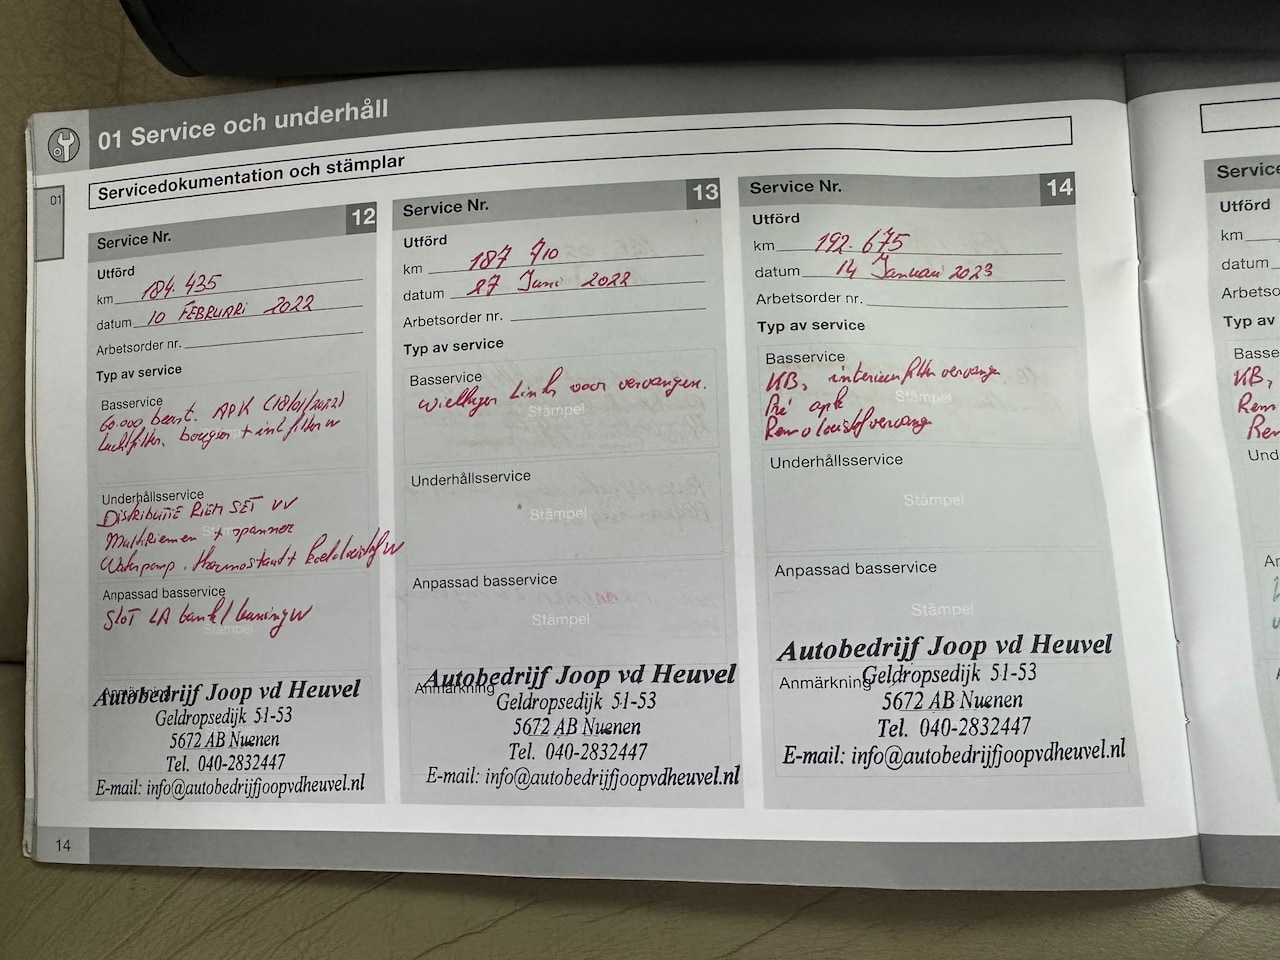 01 Service och underhåll
Servicedokumentation och stämplar
01
Service Nr. 12
Utförd
km 184.435
datum 10 FEBRUARI 2022
Arbetsorder nr.
Typ av service
Basservice
60.000 beurt. APK (18/01/2022)
luchtfilter, bougies + int filter w
Stämpel
Underhållsservice
DISTRIBUTIE RIEM SET VV
Multiriemen + spanner
Stämpel
Waterpomp. Thermostaat + koelvloeistof w
Anpassad basservice
SLOT LA bank/leuning w
Stämpel
Anmärkning
Autobedrijf Joop vd Heuvel
Geldropsedijk 51-53
5672 AB Nuenen
Tel. 040-2832447
E-mail: info@autobedrijfjoopvdheuvel.nl
Service Nr. 13
Utförd
km 187 710
datum 27 Juni 2022
Arbetsorder nr.
Typ av service
Basservice
wiellager Links voor vervangen.
Stämpel
Underhållsservice
Stämpel
Anpassad basservice
Stämpel
Anmärkning
Autobedrijf Joop vd Heuvel
Geldropsedijk 51-53
5672 AB Nuenen
Tel. 040-2832447
E-mail: info@autobedrijfjoopvdheuvel.nl
Service Nr. 14
Utförd
km 192.675
datum 14 Januari 2023
Arbetsorder nr.
Typ av service
Basservice
KB, interieurfilter vervangen
Stämpel
Pré apk
Remvloeistof vervang
Underhållsservice
Stämpel
Anpassad basservice
Stämpel
Anmärkning
Autobedrijf Joop vd Heuvel
Geldropsedijk 51-53
5672 AB Nuenen
Tel. 040-2832447
E-mail: info@autobedrijfjoopvdheuvel.nl
14
Service
Utförd
km
datum
Arbetso
Typ av
Basse
KB,
Rem
Rem
Und